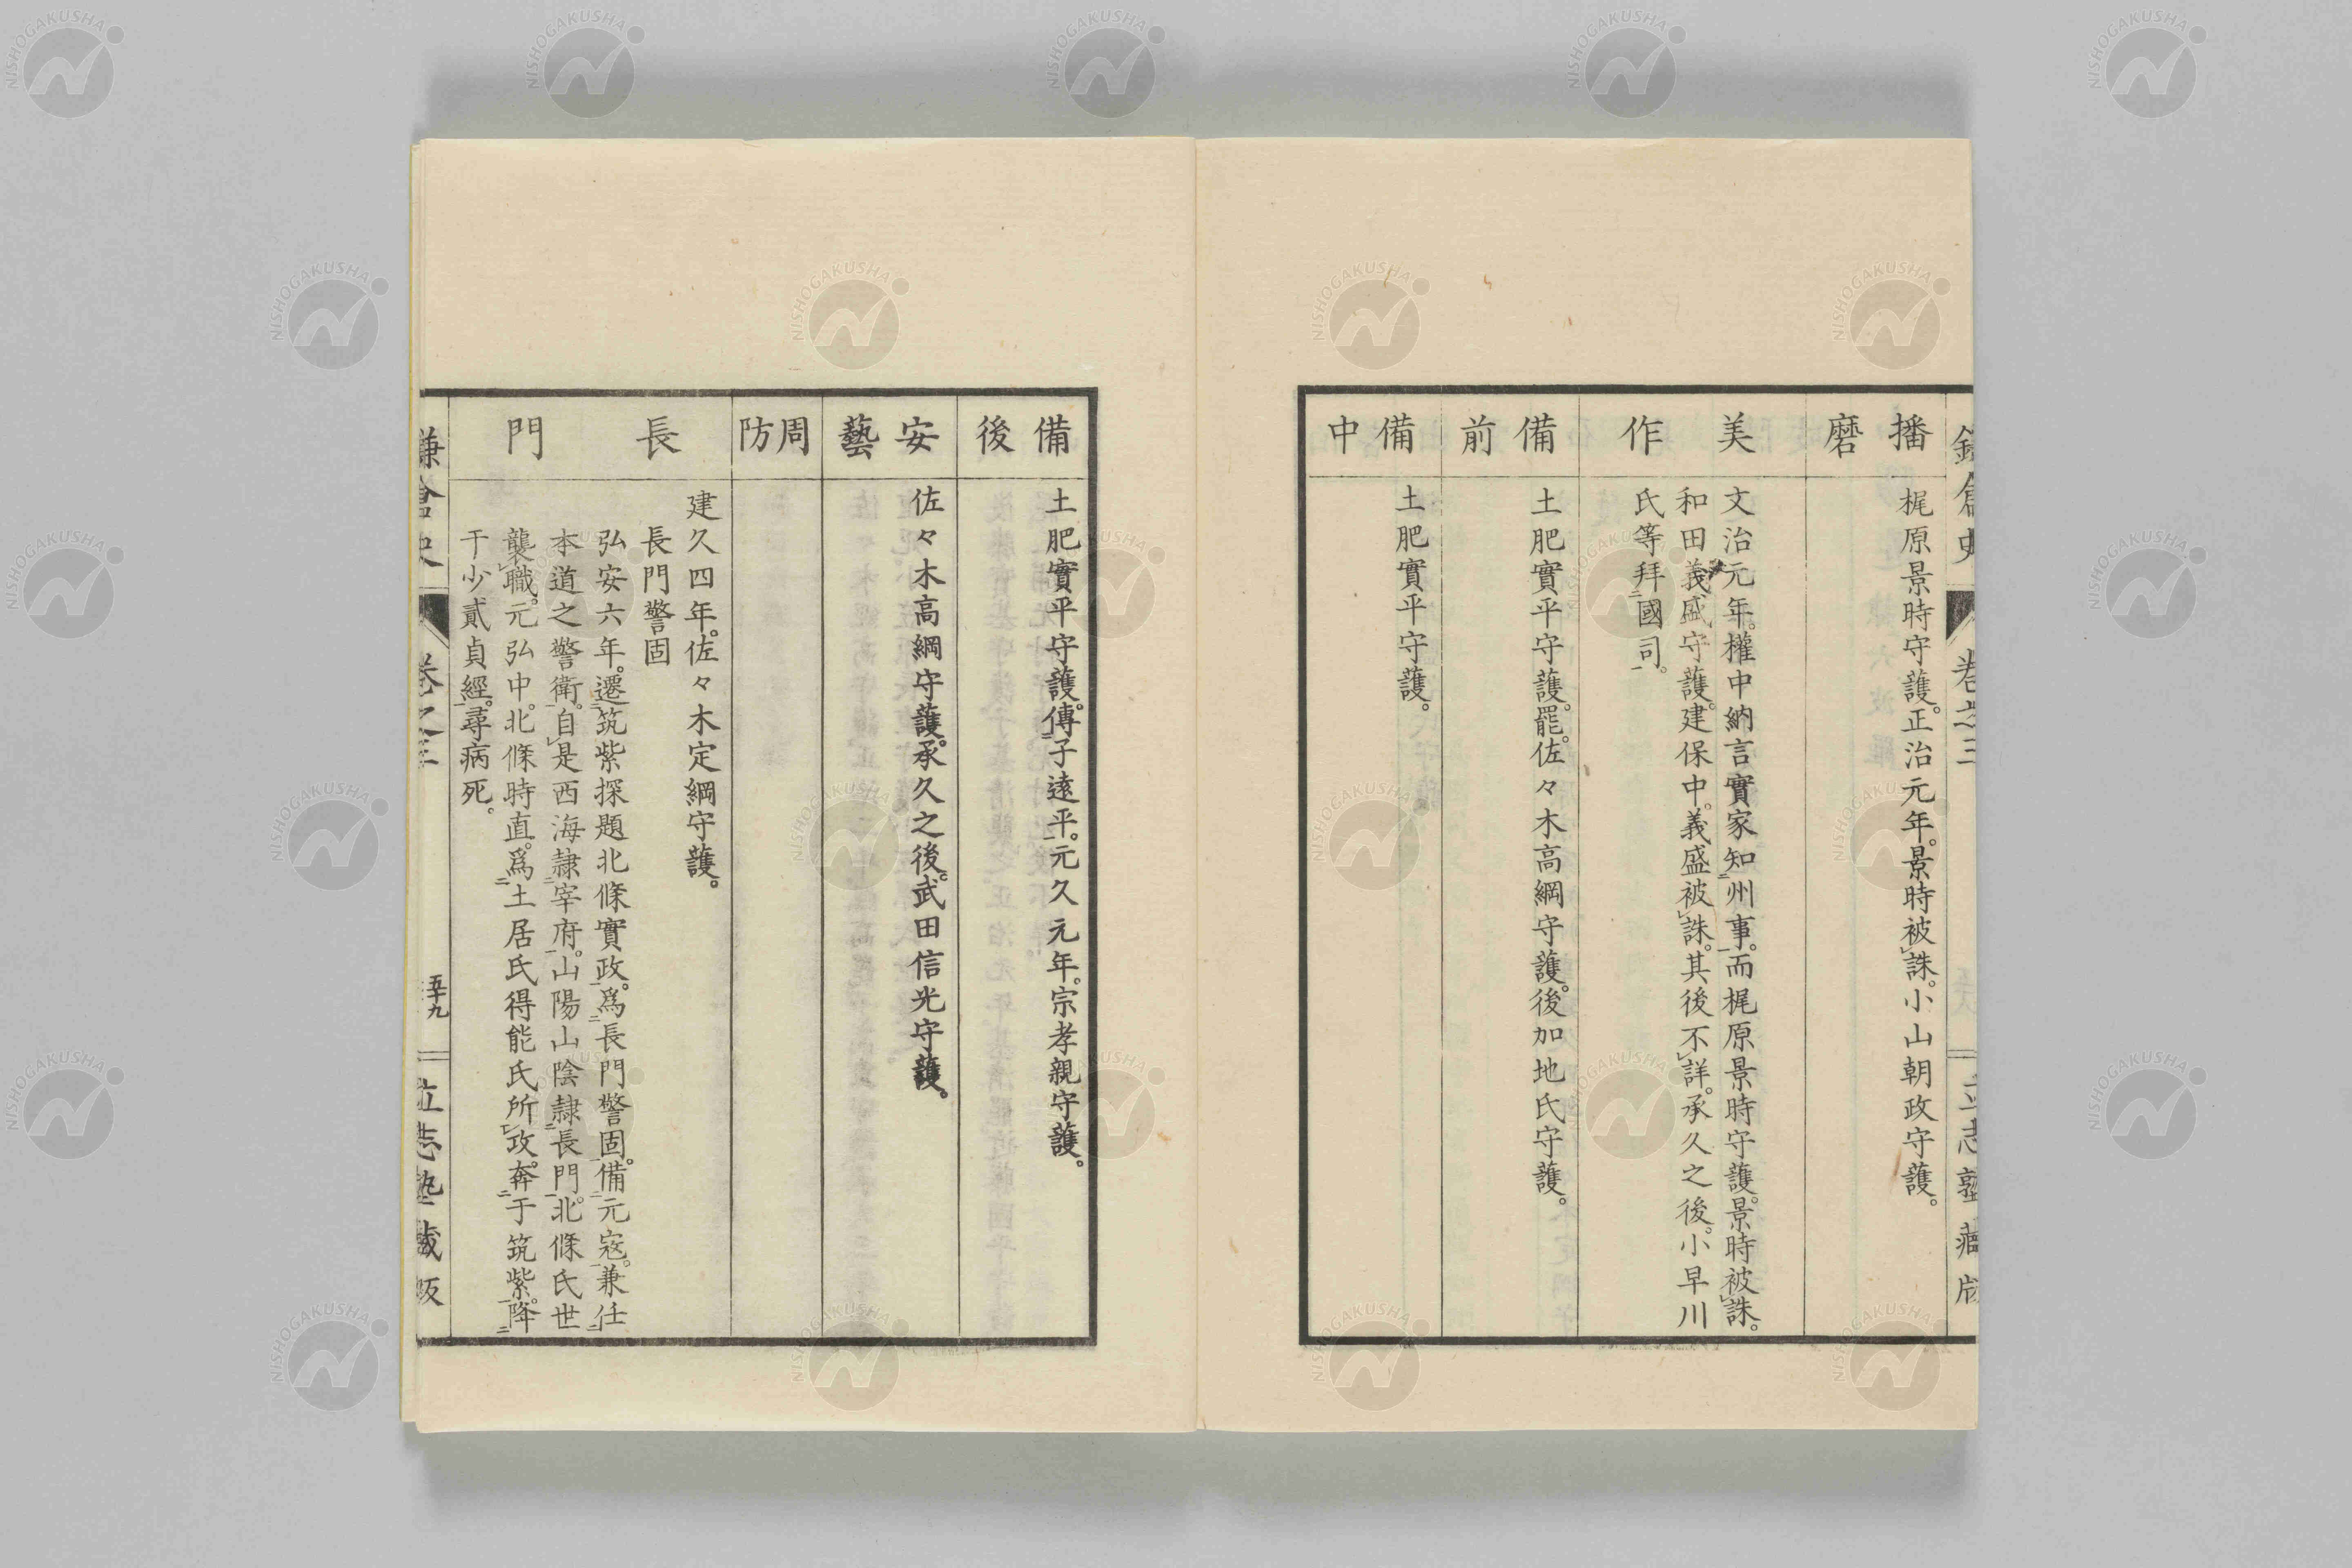 鎌倉史 卷之三 立志塾藏版
播磨
梶原景時守護。正治元年。景時被誅。小山朝政守護。
美作
文治元年。權中納言實家知州事。而梶原景時守護。景時被誅。
和田義盛守護。建保中。義盛被誅。其後不詳。承久之後。小早川
氏等拜國司。
備前
土肥實平守護。罷。佐々木高綱守護。後加地氏守護。
備中
土肥實平守護。
備後
土肥實平守護。傳子遠平。元久元年。宗孝親守護。
安藝
佐々木高綱守護。承久之後。武田信光守護。
周防
長門
建久四年。佐々木定綱守護。
長門警固
弘安六年。遷筑紫探題北條實政。爲長門警固。備元寇。兼任
本道之警衛。自是西海隷宰府。山陽山陰隷長門。北條氏世
襲職。元弘中。北條時直。爲土居氏得能氏所攻。奔于筑紫。降
于少貳貞經。尋病死。
鎌倉史 卷之三 五十九 立志塾藏版
NISHOGAKUSHA